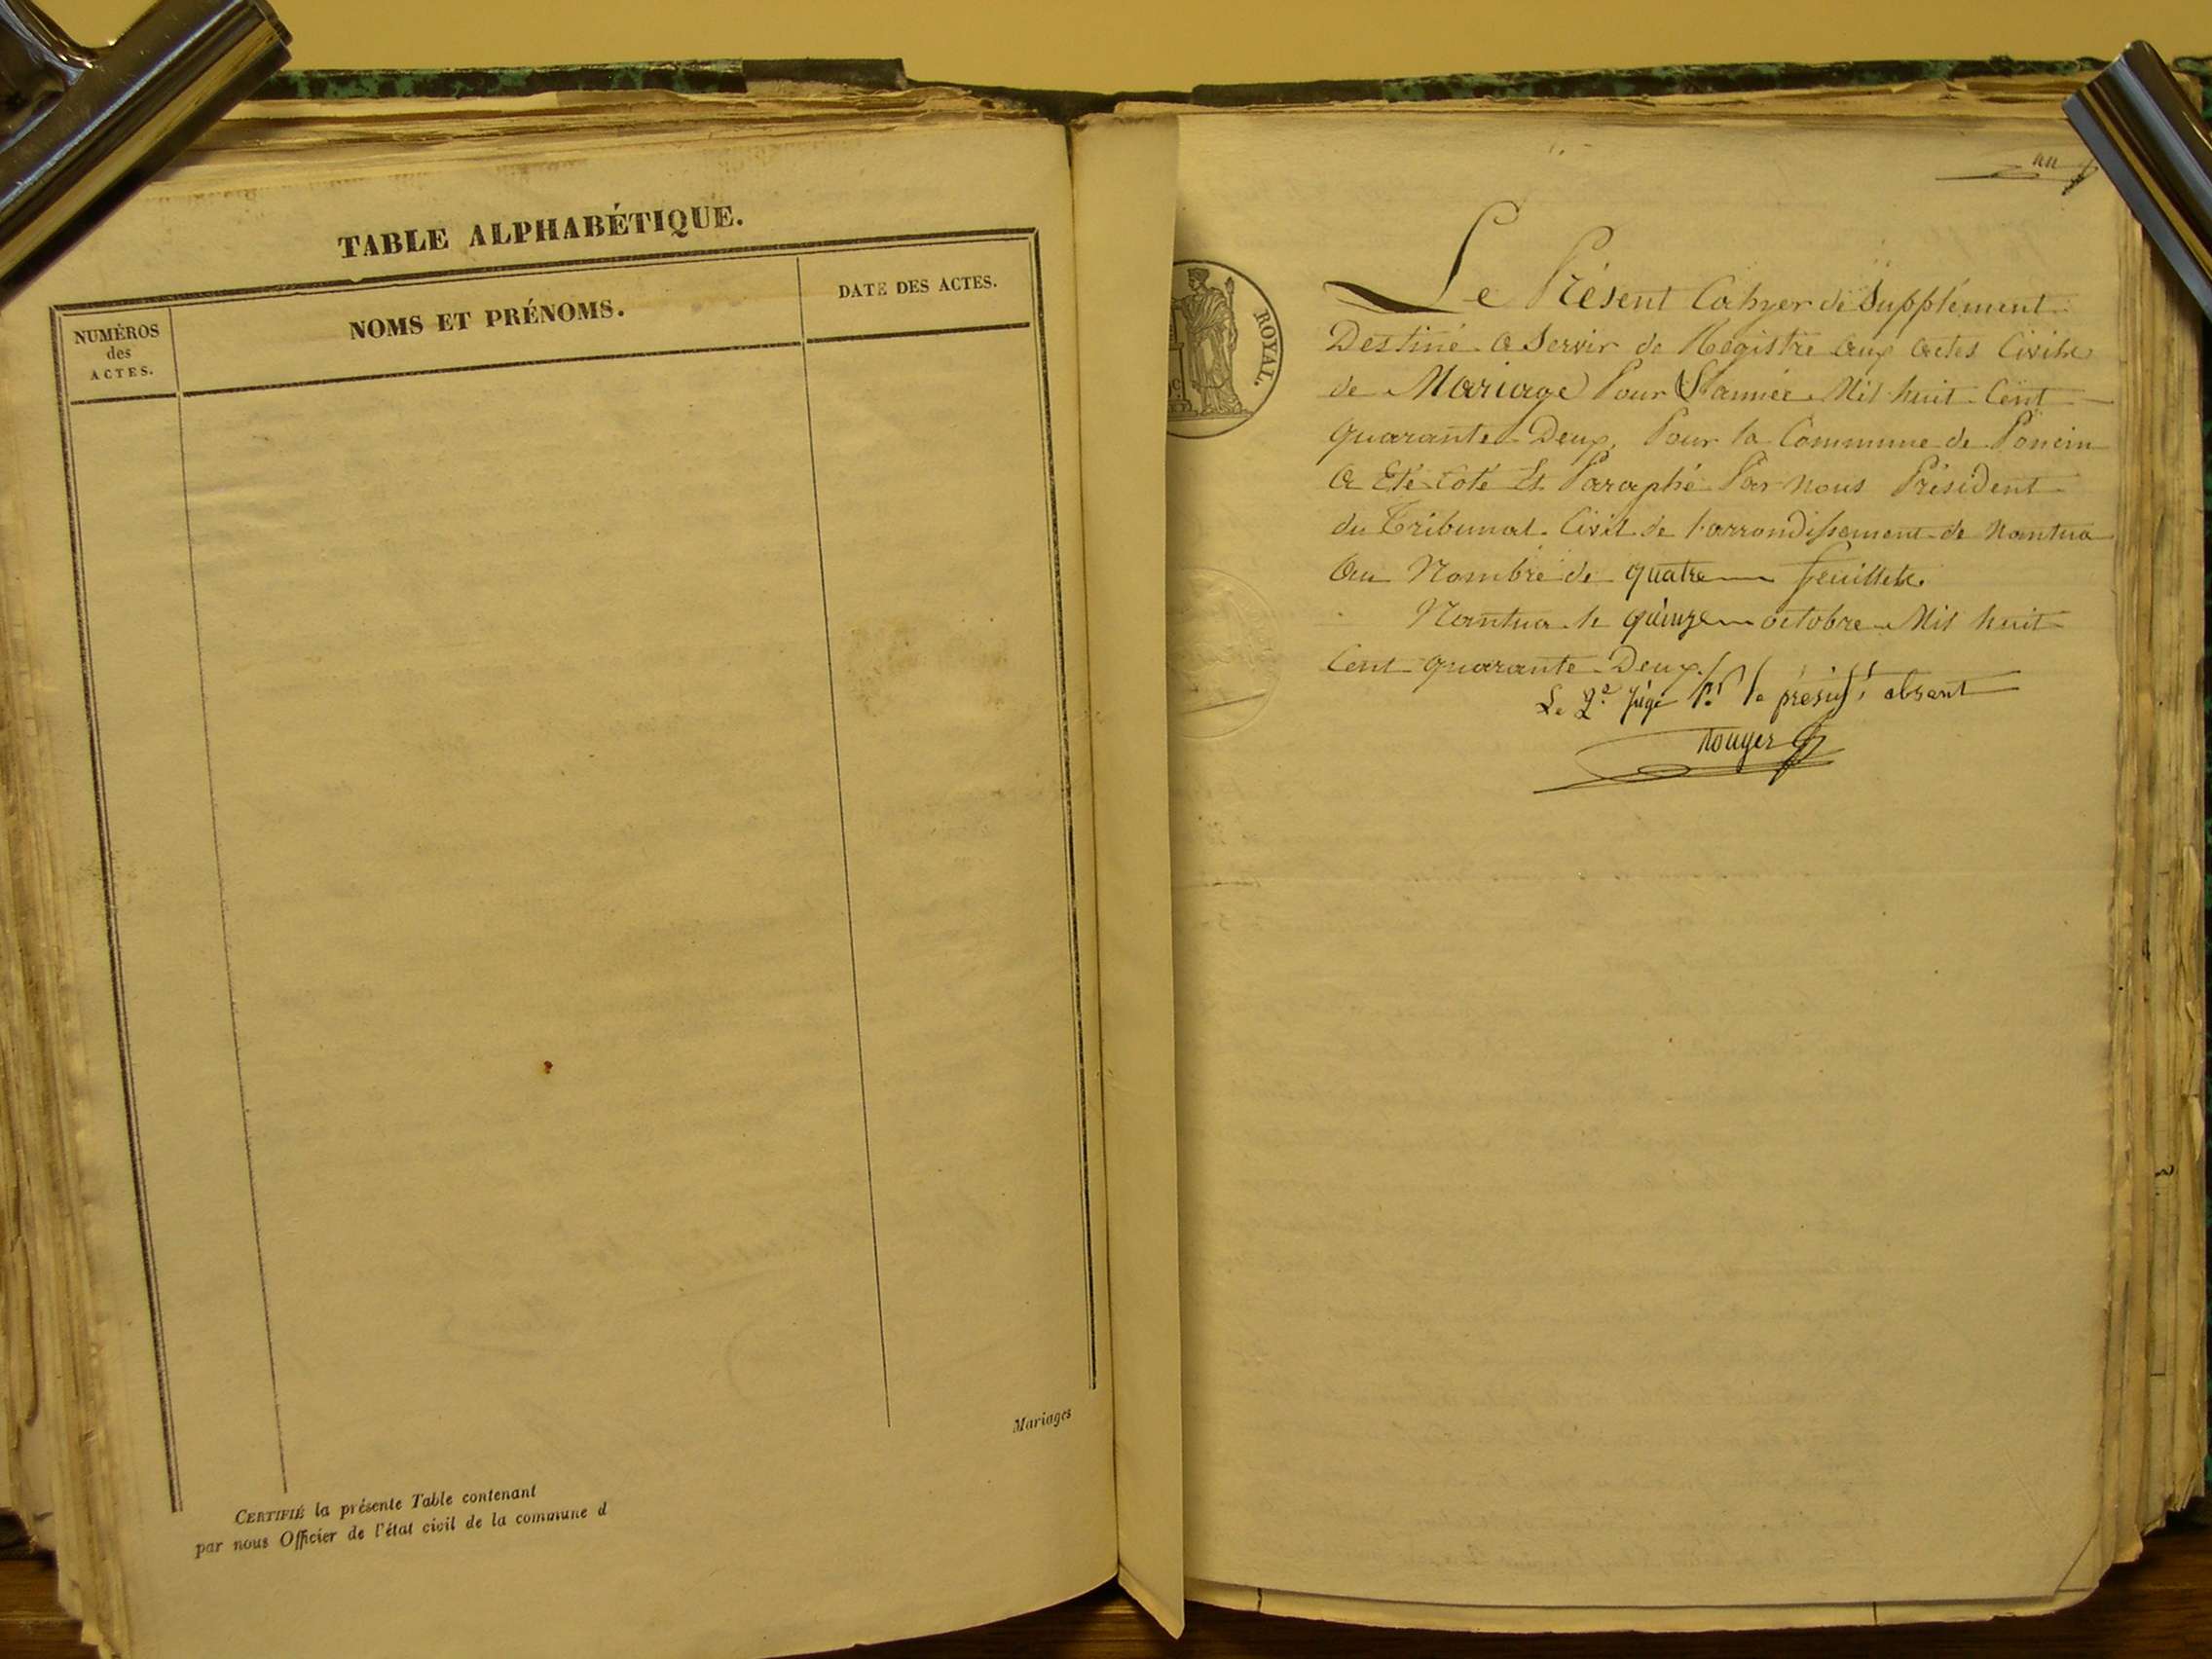 TABLE ALPHABÉTIQUE.
NUMÉROS
des
ACTES.
NOMS ET PRÉNOMS.
DATE DES ACTES.
Mariages
CERTIFIÉ la présente Table contenant
par nous Officier de l'état civil de la commune d
ROYAL.
un
Le Présent Cahyer de Supplément
Destiné a Servir de Régistre aux actes Civils
de Mariage Pour L'année Mil huit Cent
quarante Deux, Pour la Commune de Poncin
a Eté Coté Et Paraphé Par nous Président
du Tribunal Civil de l'arrondissement de Nantua
au Nombre de quatre feuillets.
Nantua le quinze octobre Mil huit
Cent quarante Deux.
Le 2.e Juge p.r le présid.t absent
Rouyer